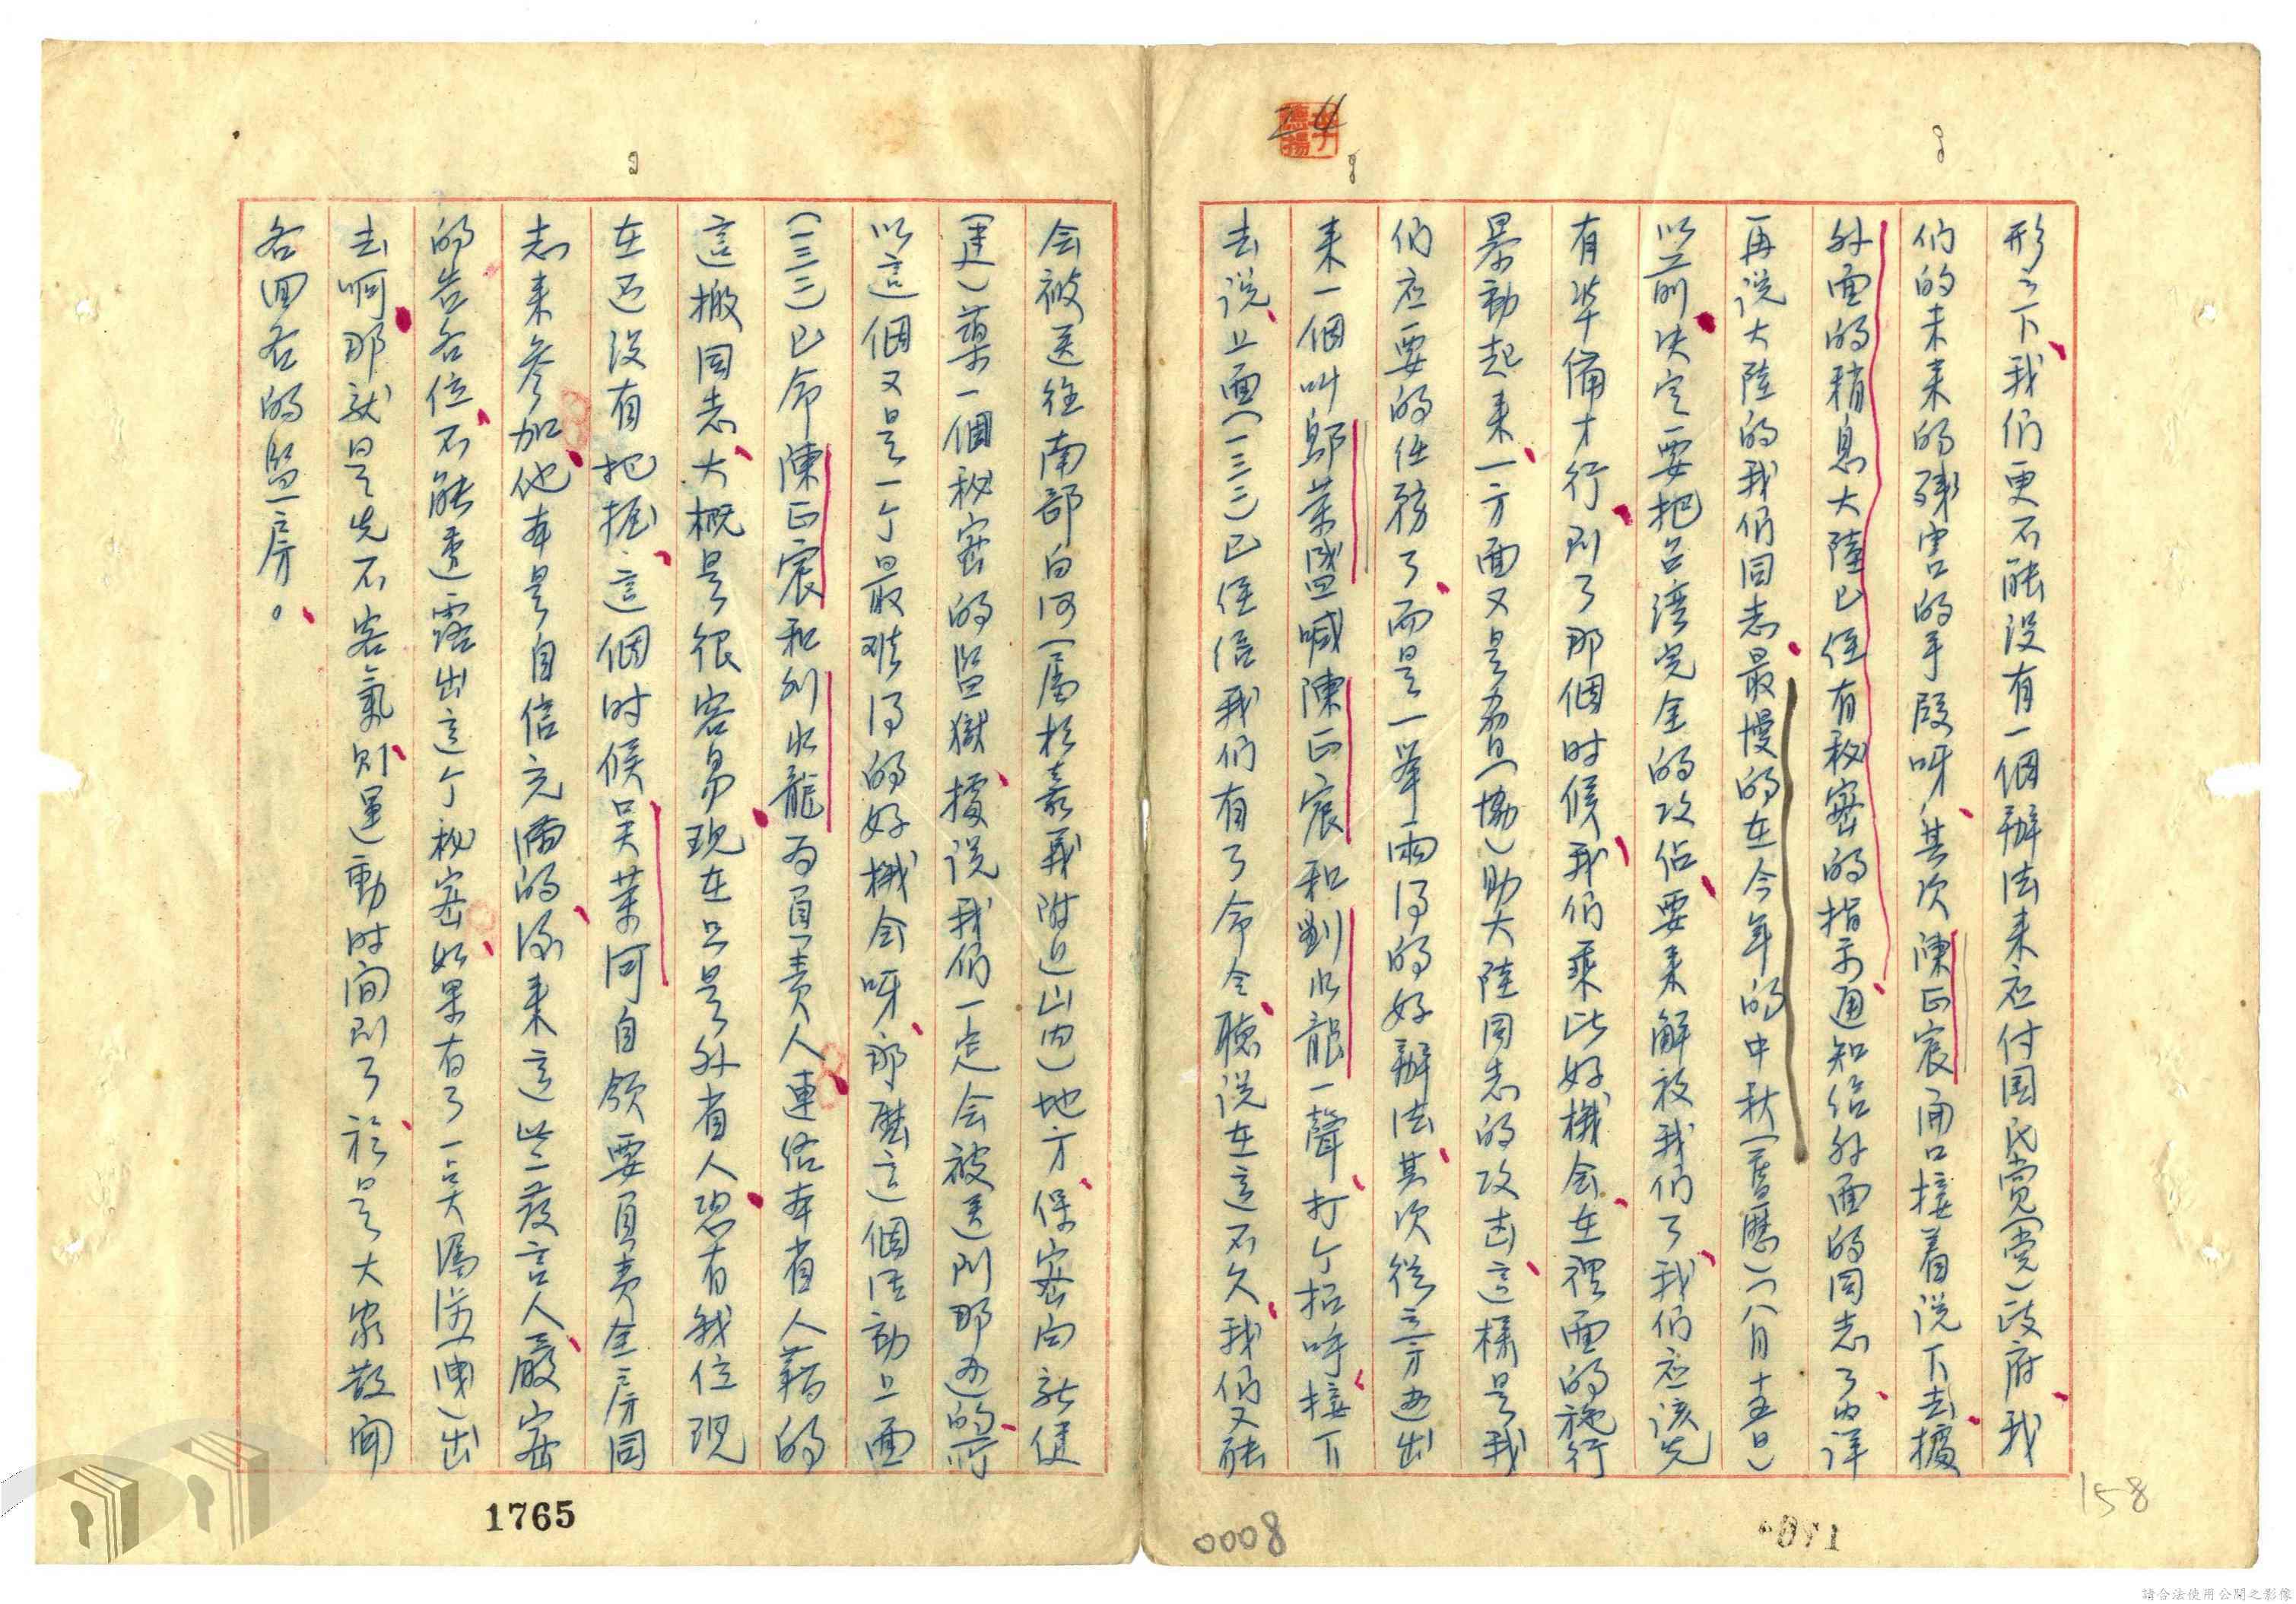 形之下我们更不能没有一個辦法来应付国民党(党)政府我
们的未来的残害的手段呀其次陳正宸開口接着说下去據
外面的稍息大陸已経有秘密的指示通知给外面的同志了
再说大陸的我们同志最慢的在今年的中秋(舊歷)(八月十五日)
以前决定要把台湾完全的攻佔要来解放我们了我们应该先
有準備才行到了那個时候我们乘此好機会在裡面的施行
暴動起来一方面又是(協)助大陸同志的攻击這樣是我
们应要的任務了而是一举兩得的好辦法其次從方面出
来一個叫鄔葉盛喊陳正宸和劉水龍一聲打个招呼接下
去说上面(一三三)已経信我们有了命令聽说在這不久我们又能
会被送往南部白河(属於嘉義附近山内)地方保密局就使
(建)築一個秘密的監獄據说我们一定会被送到那边的所
以這個又是一个最难得的好机会呀那麽這個活動上面
(一三三)已命陳正宸和刘水龍为負責人連络本省人藉的
這撤同志大概是很容易現在只是外省人恐有幾位現
在还没有把握這個时候吴葉何自領要負责全房同
志来参加他本是自信充满的後来這些發言人嚴密
的告各位不能透露出這个秘密如果有了一点漏(洩)出
去啊那就是先不客氣則運動时间到了於是大家散開
各回各的監房。
24
1765
0008
091
158
請合法使用公開之影像